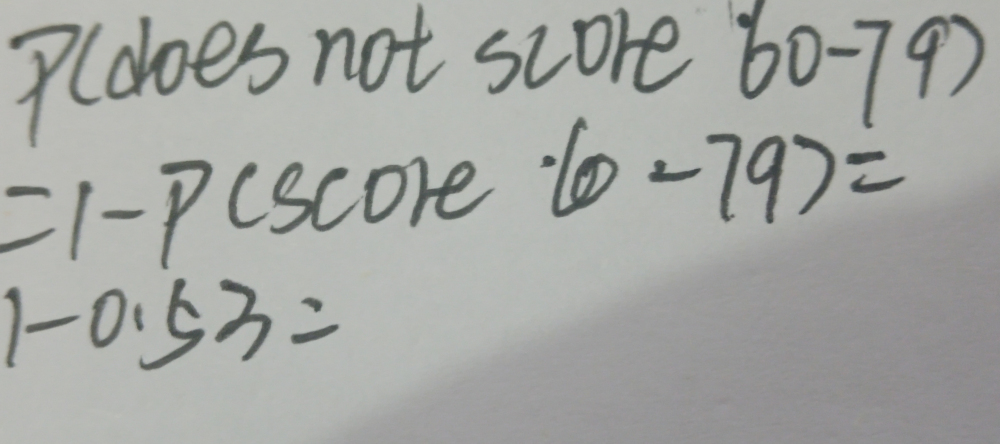 P(does not score 60-79)
=1-P(score 60-79)=
1-0.53=